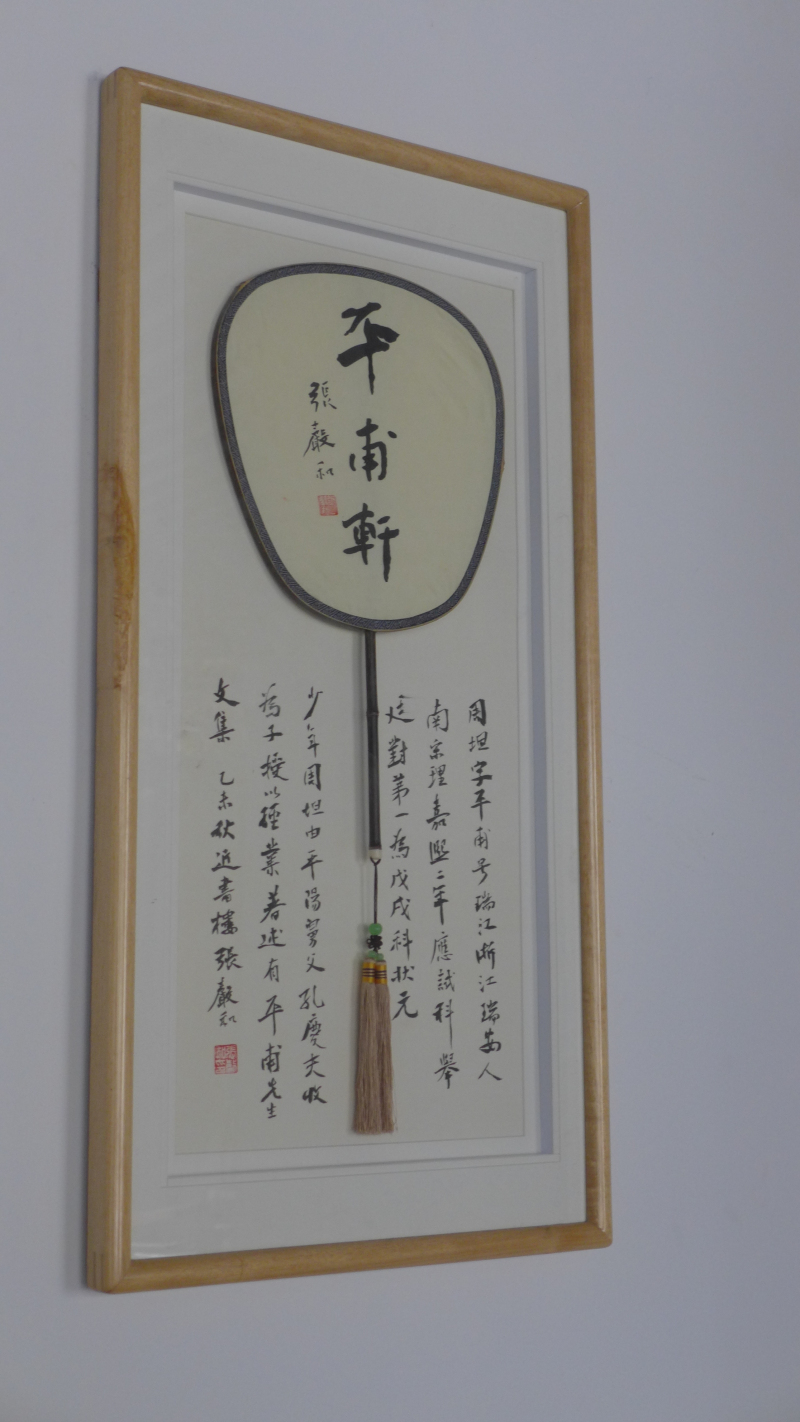 平甫軒
張嚴和
周坦字平甫号瑞江浙江瑞安人
南宗理嘉熙二年應試科舉
廷對第一為戊戌科狀元
少年周坦由平陽舅父孔慶夫收
為子授以經業著述有平甫先生
文集 乙未秋近書樓張嚴和